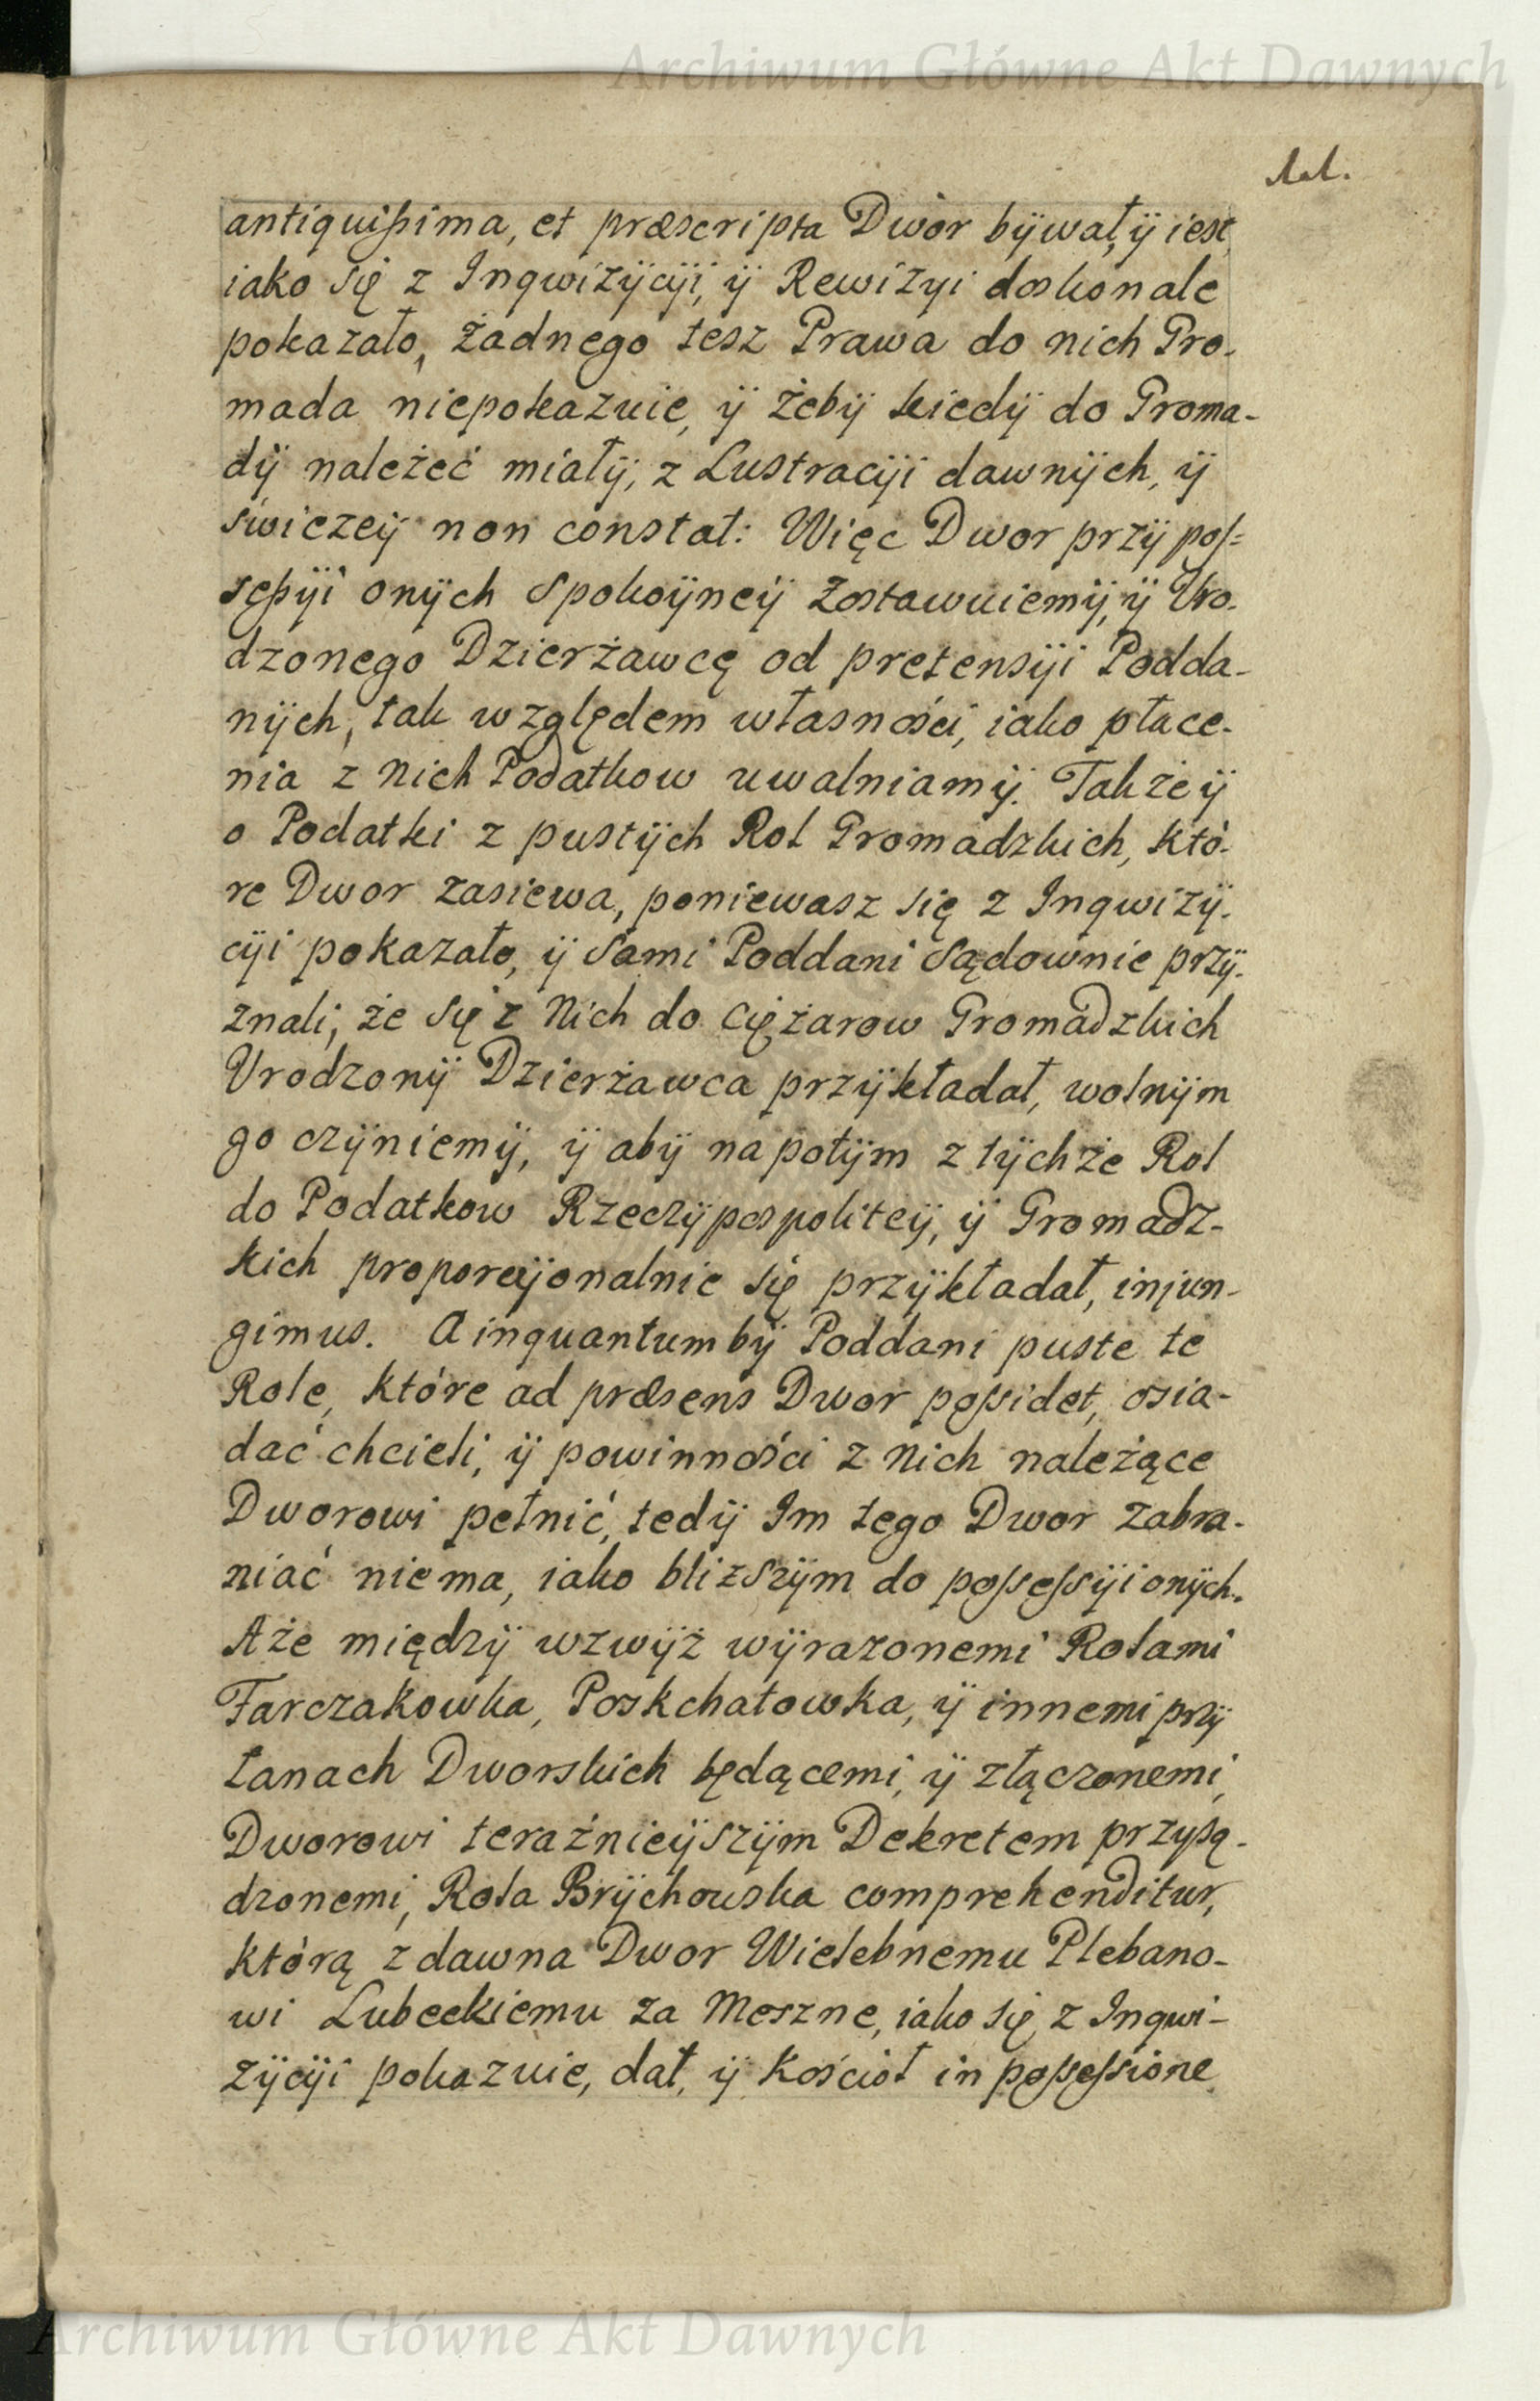 Archiwum Główne Akt Dawnych
antiquißima, et præscripta Dwòr bÿwał, ÿ iest
iako się z Inqwizÿcÿi, ÿ Rewizyi doskonale
pokazało, żadnego tesz Prawa do nich Gro-
mada niepokazuie, ÿ żebÿ kiedÿ do Groma-
dÿ należeć miałÿ, z Lustracÿi dawnÿch, ÿ
swiezeÿ non constat: Więc Dwor przÿ pos=
seßÿi onÿch Spokoÿneÿ zostawuiemÿ, ÿ Uro-
dzonego Dzierżawcę od pretensÿi Podda-
nÿch, tak względem własności, iako płace-
nia z Nich Podatkow uwalniamÿ. Także ÿ
o Podatki z pustÿch Rol Gromadzkich, któ-
re Dwor zasiewa, poniewasz się z Inqwizÿ-
cÿi pokazało, ÿ Sami Poddani Sądownie przÿ-
znali, że się z Nich do Ciężarow Gromadzkich
Urodzonÿ Dzierżawca przÿkładał, wolnÿm
go czÿniemÿ, ÿ abÿ na potÿm z tÿchże Rol
do Podatkow Rzeczÿpospoliteÿ, ÿ Gromadz-
kich proporcÿonalnie się przÿkładał, injun-
gimus. A inquantum bÿ Poddani puste te
Role, które ad præsens Dwor possidet, osia-
dać chcieli, ÿ powinności z Nich należące
Dworowi pełnić, tedÿ Im tego Dwor zabra-
niać niema, iako bliższÿm do possessÿi onÿch.
A że międzÿ wzwÿż wÿrazonemi Rolami
Farczakowka, Poskchałowka, ÿ innemi przÿ
łanach Dworskich będącemi, ÿ złączonemi,
Dworowi teraźnieÿszÿm Dekretem przysą-
dzonemi, Rola Brÿchowska comprehenditur,
którą z dawna Dwor Wielebnemu Plebano-
wi Lubeckiemu za Meszne, iako się z Inqwi-
zÿcÿi pokazuie, dał, ÿ Kościoł in possessione
Archiwum Główne Akt Dawnych